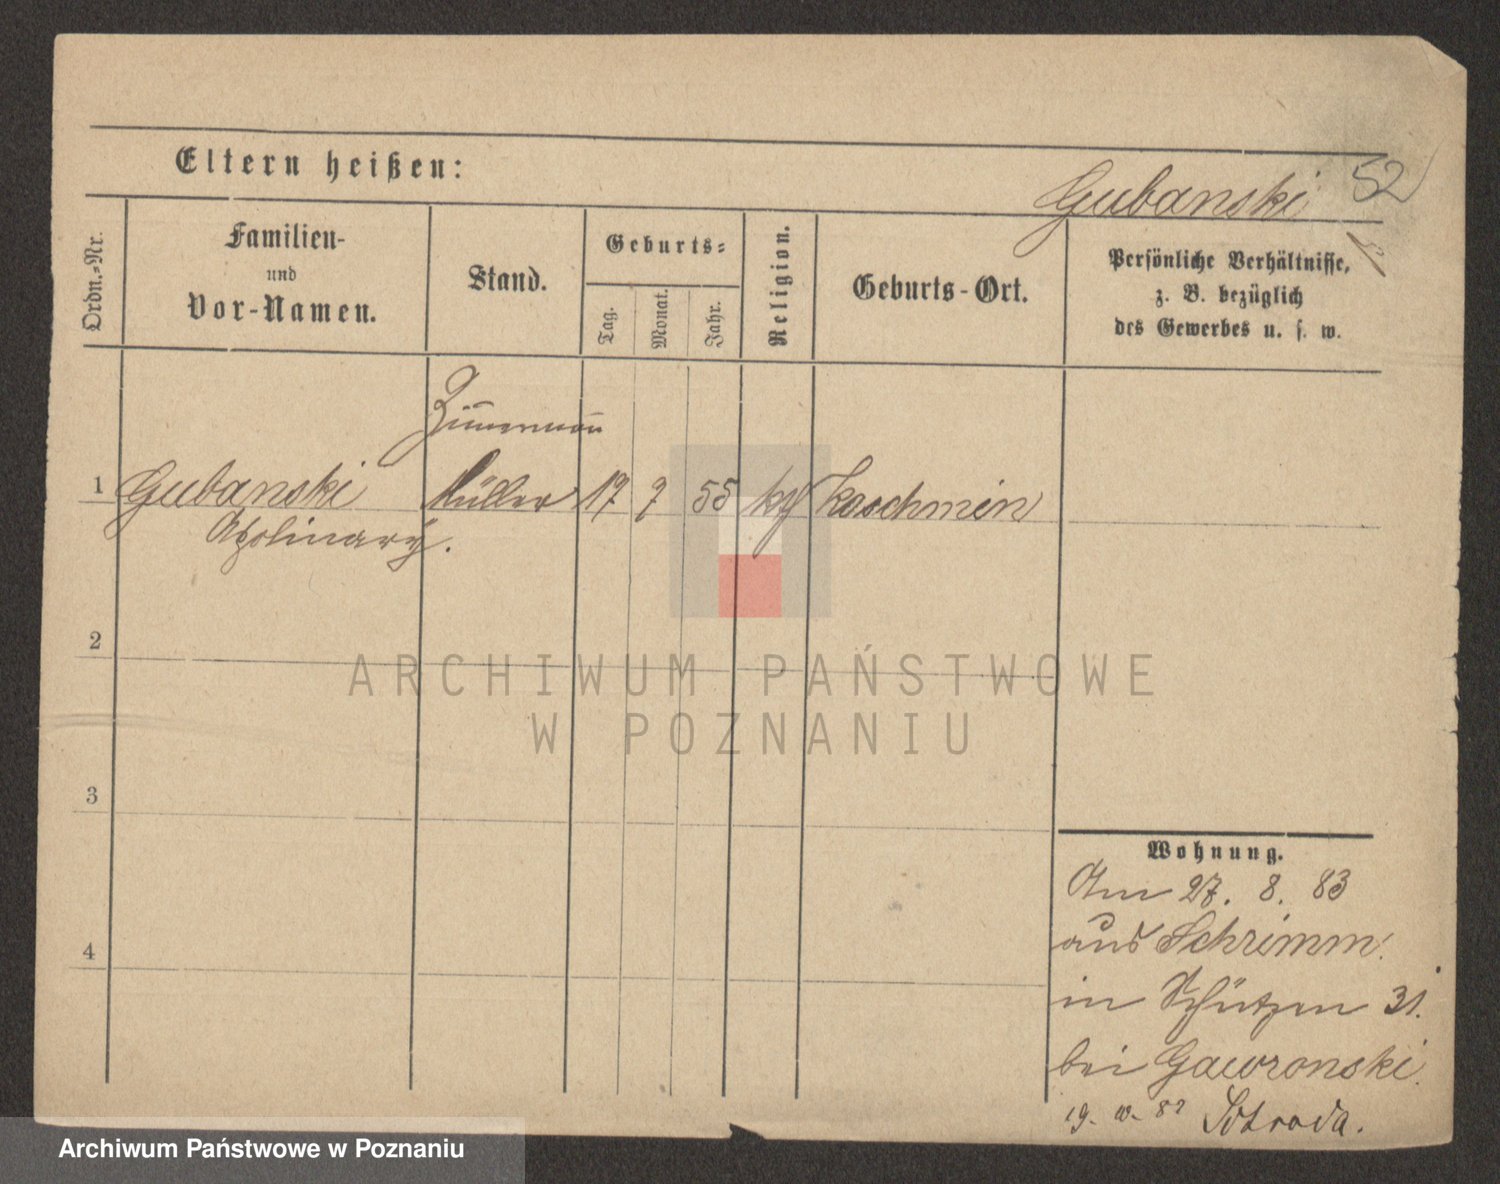 Eltern heißen:
Gubanski
52
Ordn.-Nr.
Familien-
und
Vor-Namen.
Stand.
Geburts-
Tag.
Monat.
Jahr.
Religion.
Geburts-Ort.
Persönliche Verhältnisse,
z. B. bezüglich
des Gewerbes u. s. w.
1 Gubanski Müller 17 7 55 kth Koschmin
Apolinary.
2
3
4
Wohnung.
Am 27. 8. 83
aus Schrimm.
in Schützen 31.
bei Gawronski.
ARCHIWUM PAŃSTWOWE
W POZNANIU
Archiwum Państwowe w Poznaniu